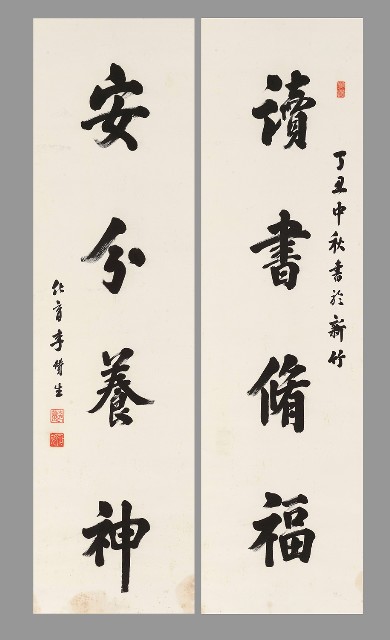 丁丑中秋書於新竹
讀書脩福
安分養神
化育李贊生